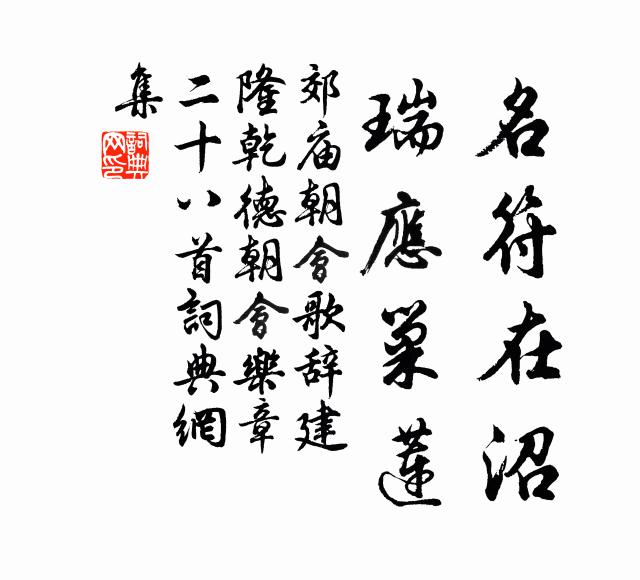 名符在沼
瑞應巢蓮
郊庙朝會歌辞建
隆乾德朝會樂章
二十八首詞典網
集
詞典網印